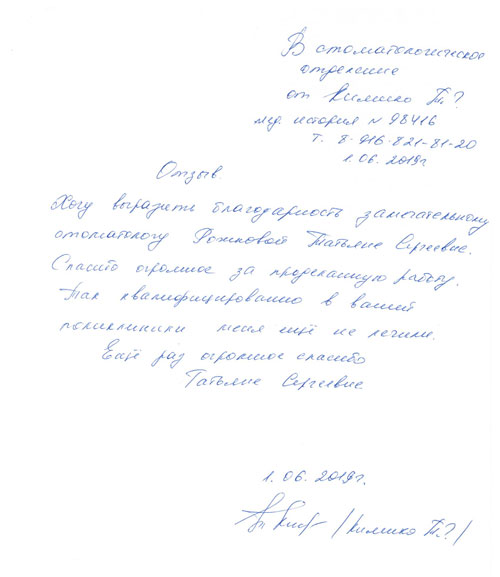 В стоматологическое
отделение
от Килинко Т.?
мед. история N 98416
т. 8-916-821-81-20
1.06.2019г
Отзыв.
Хочу выразить благодарность замечательному
стоматологу Рожковой Татьяне Сергеевне.
Спасибо огромное за проделанную работу.
Так квалифицированно в вашей
поликлинике меня ещё не лечили.
Ещё раз огромное спасибо
Татьяне Сергеевне
1.06.2019г.
/Килинко Т.?/